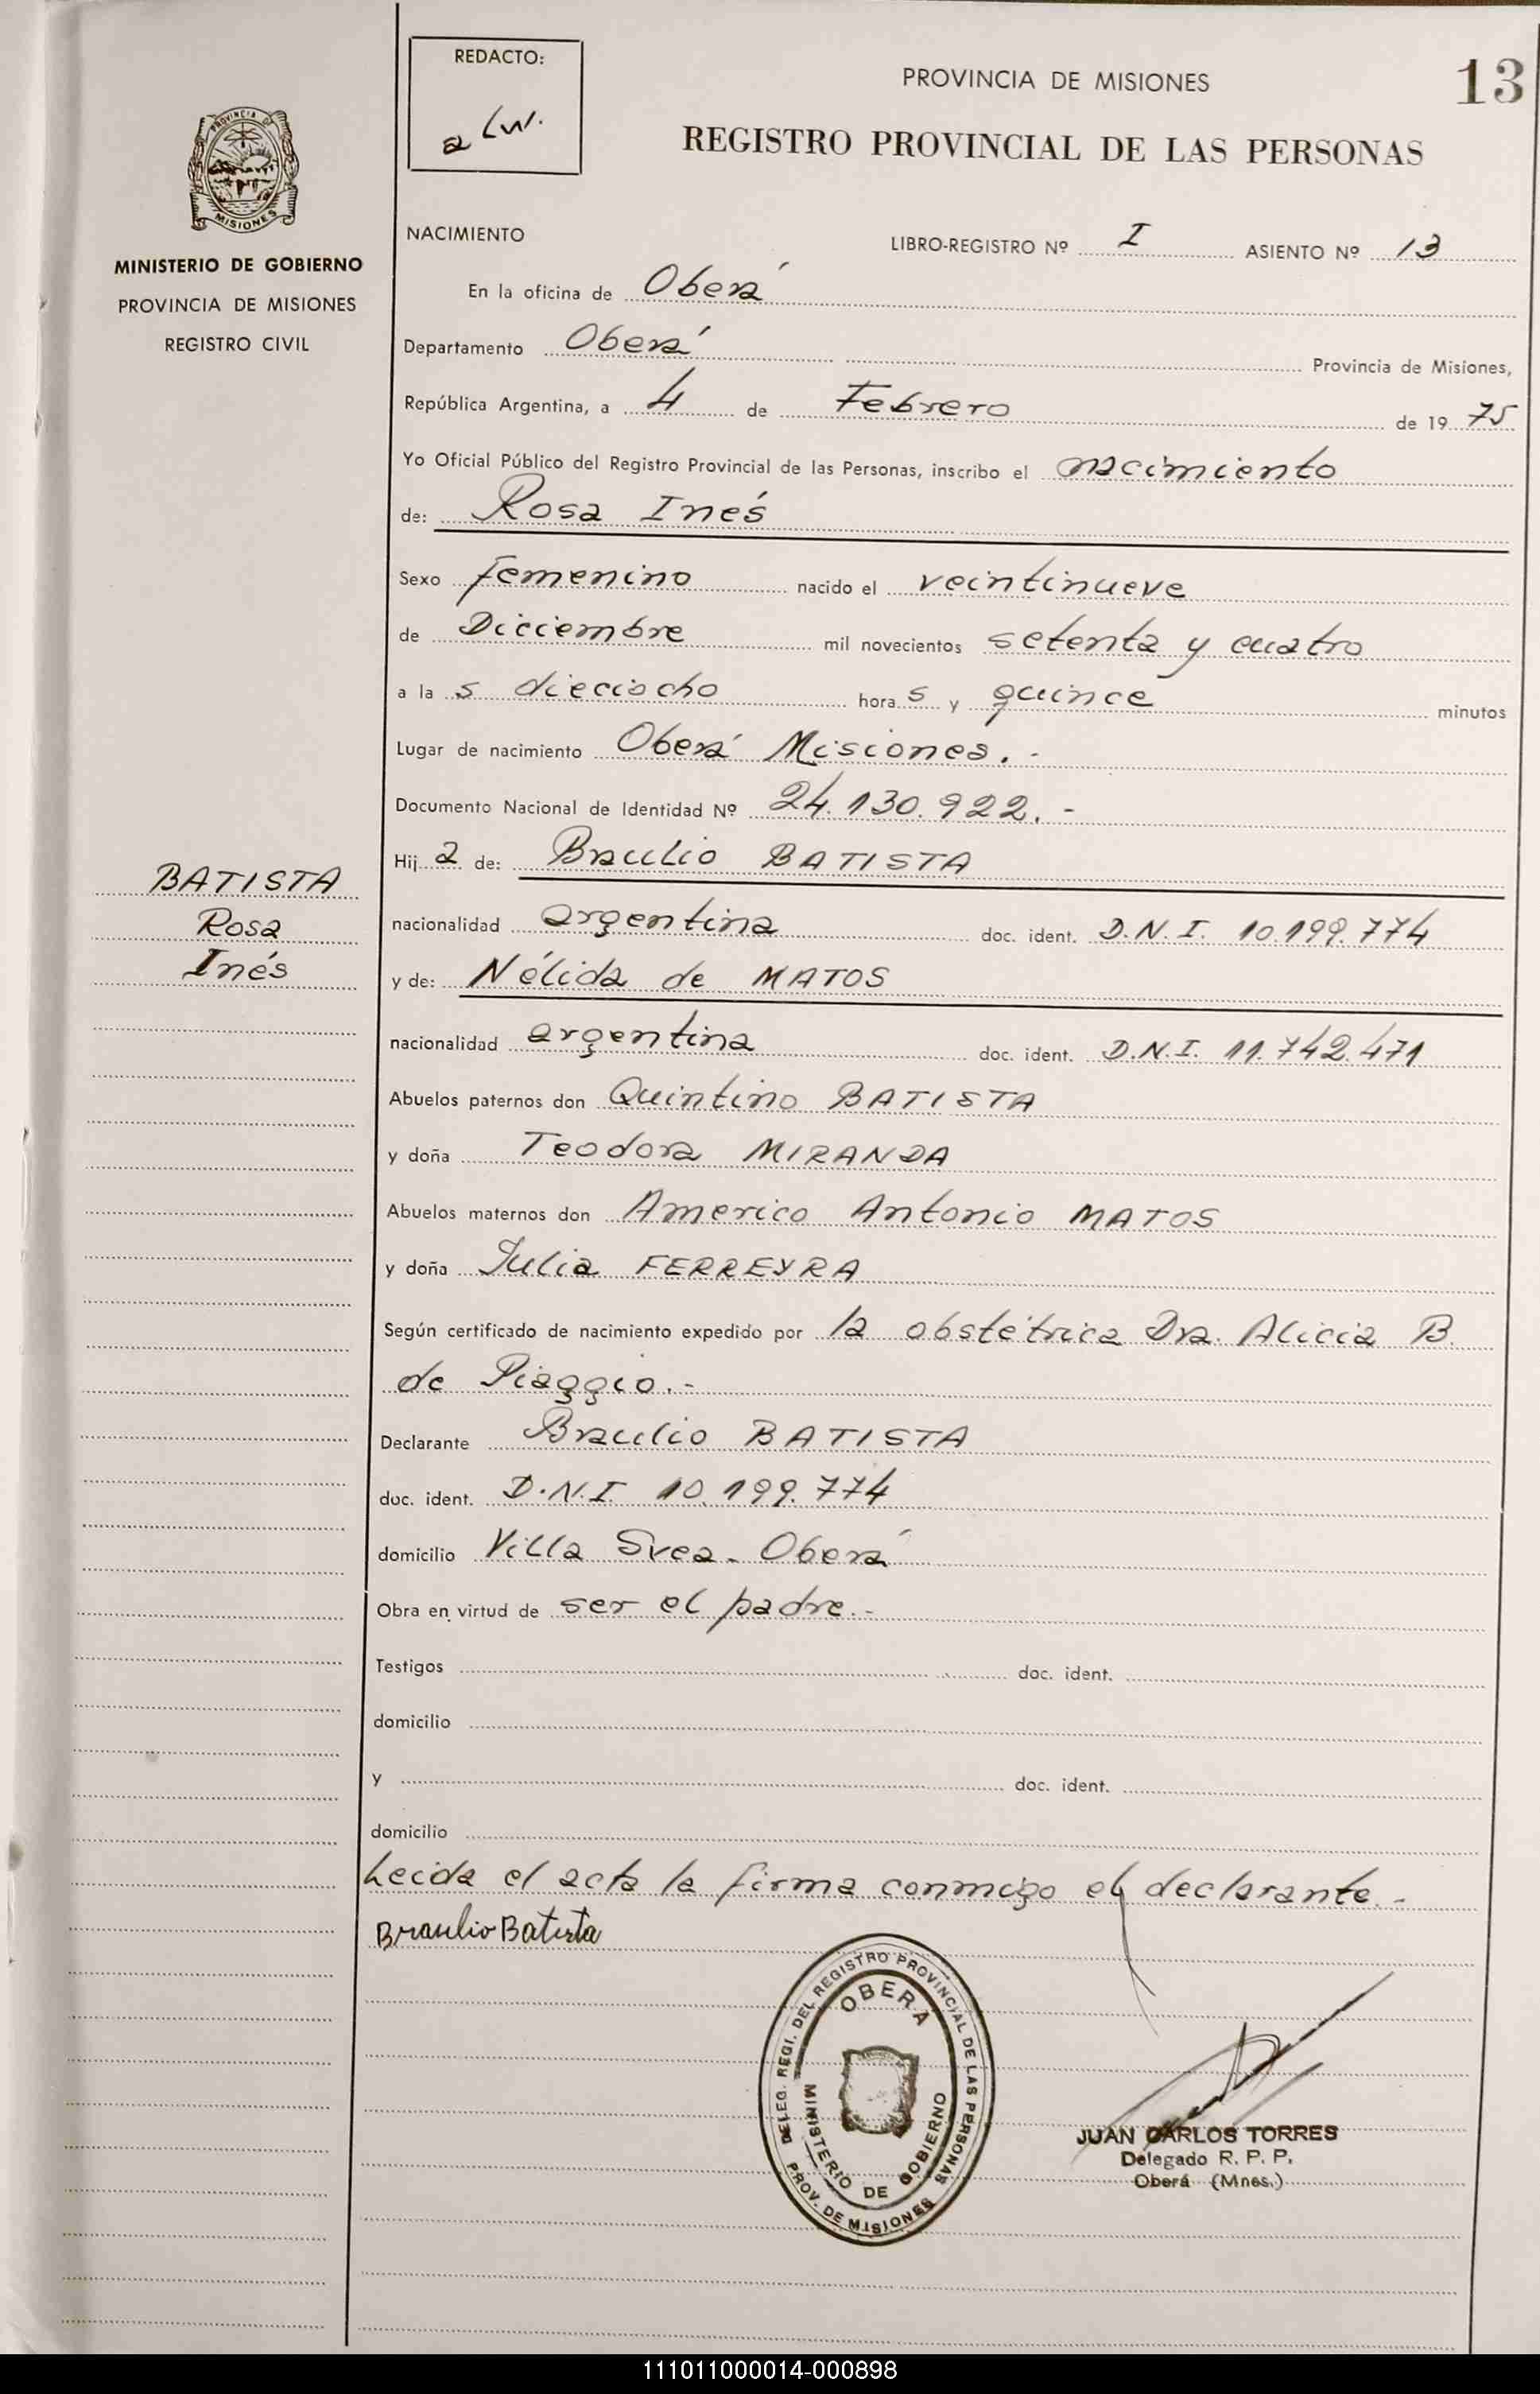 REDACTO:
PROVINCIA DE MISIONES
13
REGISTRO PROVINCIAL DE LAS PERSONAS
PROVINCIA DE
MISIONES
MINISTERIO DE GOBIERNO
PROVINCIA DE MISIONES
REGISTRO CIVIL
NACIMIENTO
LIBRO-REGISTRO Nº I ASIENTO Nº 13
En la oficina de Oberá
Departamento Oberá Provincia de Misiones,
República Argentina, a 4 de Febrero de 19 75
Yo Oficial Público del Registro Provincial de las Personas, inscribo el nacimiento
de: Rosa Inés
Sexo femenino nacido el veintinueve
de Diciembre mil novecientos setenta y cuatro
a la s dieciocho hora s y quince minutos
Lugar de nacimiento Oberá Misiones.-
Documento Nacional de Identidad Nº 24.130.922.-
Hij a de: Braulio BATISTA
BATISTA
Rosa
Inés
nacionalidad argentina doc. ident. D.N.I. 10.199.774
y de: Nélida de MATOS
nacionalidad argentina doc. ident. D.N.I. 11.742.471
Abuelos paternos don Quintino BATISTA
y doña Teodora MIRANDA
Abuelos maternos don Americo Antonio MATOS
y doña Julia FERREYRA
Según certificado de nacimiento expedido por la obstétrica Dra. Alicia B.
de Piaggio.-
Declarante Braulio BATISTA
doc. ident. D.N.I. 10.199.774
domicilio Villa Svea - Oberá
Obra en virtud de ser el padre.-
Testigos doc. ident.
domicilio
y doc. ident.
domicilio
Leida el acta la firma conmigo el declarante.-
Braulio Batista
DELEG. REGI. DEL REGISTRO PROVINCIAL DE LAS PERSONAS
OBERA
MINISTERIO DE GOBIERNO
PROV. DE MISIONES
JUAN CARLOS TORRES
Delegado R. P. P.
Oberá (Mnes.)
111011000014-000898